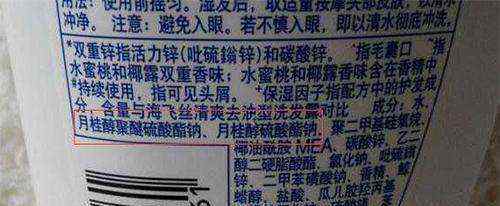 用法：使用前摇匀。湿发后，取适量按摩头部及
冲净。 注意：避免入眼。若不慎入眼，即以清水彻底冲洗。
*双重锌指活力锌(吡硫鎓锌)和碳酸锌。 *指毛囊口
*水蜜桃和椰露双重香味：水蜜桃和椰露香味含在香精中
*持续使用，指可见头屑。 *保湿因子指配方中的护发成
分，含量与海飞丝清爽去油型洗发露对比 成分：水、
月桂醇聚醚硫酸酯钠、月桂醇硫酸酯钠、聚二甲基硅氧烷、
椰油酰胺 MEA、碳酸锌、乙二
醇二硬脂酸酯、氯化钠、吡硫鎓
锌、二甲苯磺酸钠、香精、鲸
蜡醇、盐酸、瓜儿胶羟丙基